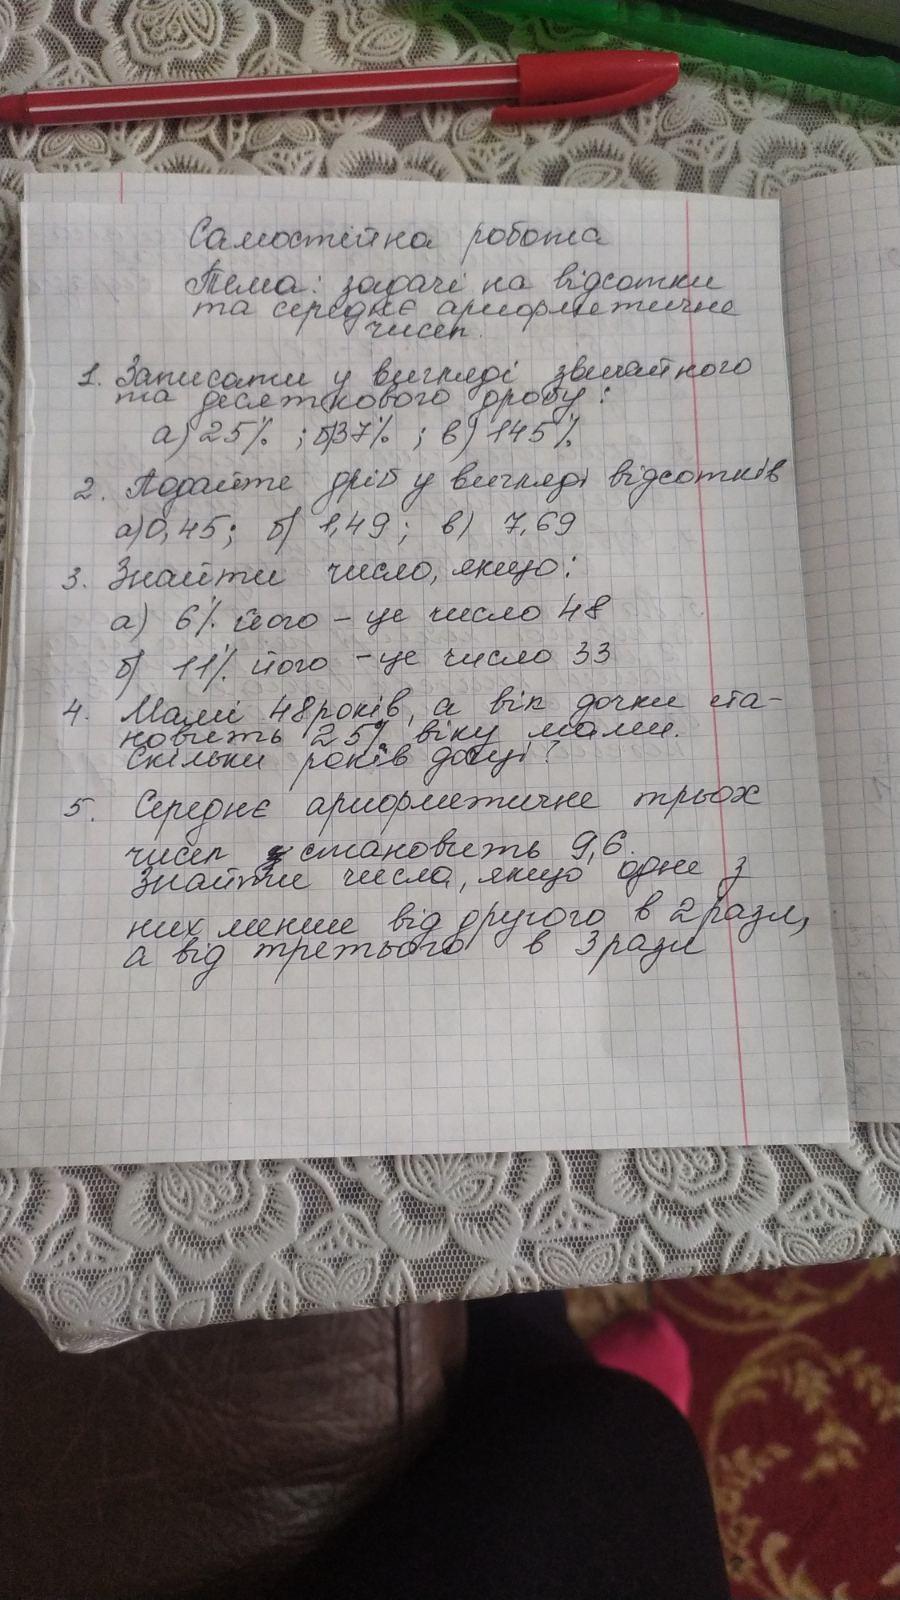 Самостійна робота
Тема: задачі на відсотки
та середнє арифметичне
чисел.
1. Записати у вигляді звичайного
та десяткового дробу:
а) 25% ; б) 37% ; в) 145%
2. Подайте дріб у вигляді відсотків
а) 0,45; б) 1,49; в) 7,69
3. Знайти число, якщо:
а) 6% його – це число 48
б) 11% його – це число 33
4. Мамі 48 років, а вік дочки ста-
новить 25% віку мами.
Скільки років доці?
5. Середнє арифметичне трьох
чисел становить 9,6.
Знайти числа, якщо одне з
них менше від другого в 2 рази,
а від третього в 3 рази